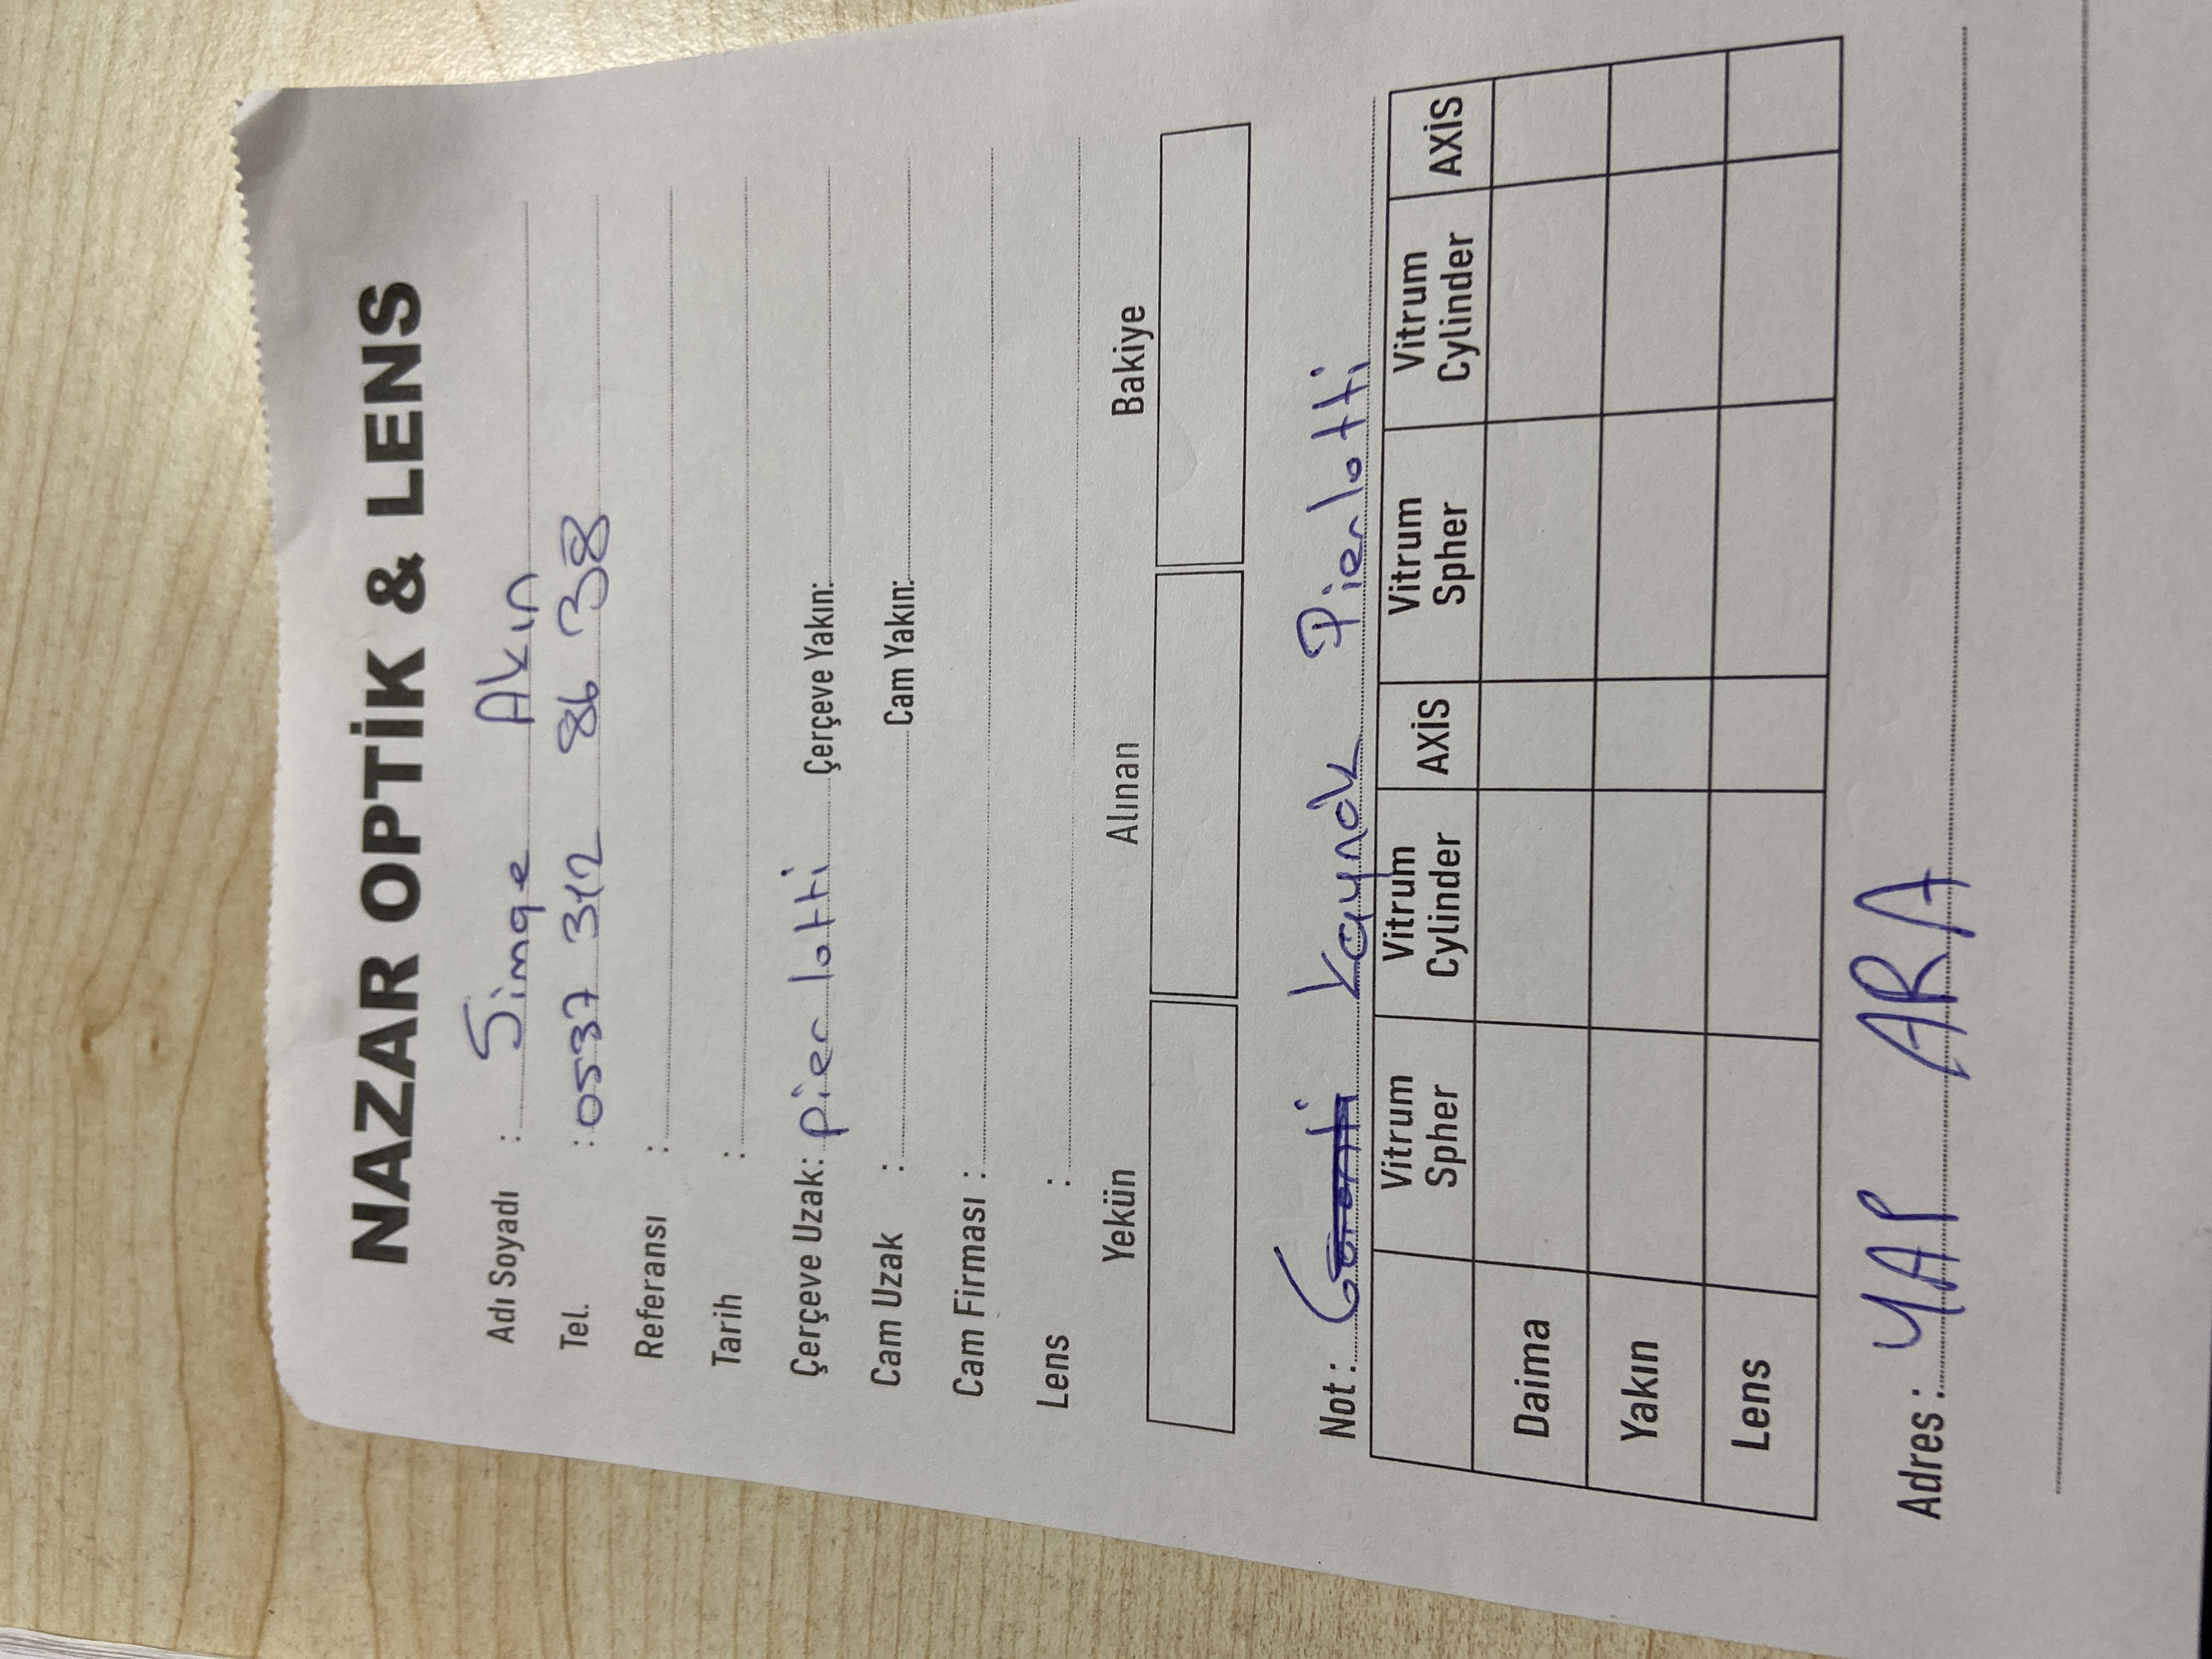 NAZAR OPTİK & LENS
Adı Soyadı : Simge Akın
Tel. : 0537 312 86 38
Referansı :
Tarih :
Çerçeve Uzak: pier lotti Çerçeve Yakın:
Cam Uzak : Cam Yakın:
Cam Firması :
Lens :
Yekün Alınan Bakiye
Not : Garanti Kaynak Pierlotti
Vitrum Spher Vitrum Cylinder AXİS Vitrum Spher Vitrum Cylinder AXİS
Daima
Yakın
Lens
Adres : YAP ARA